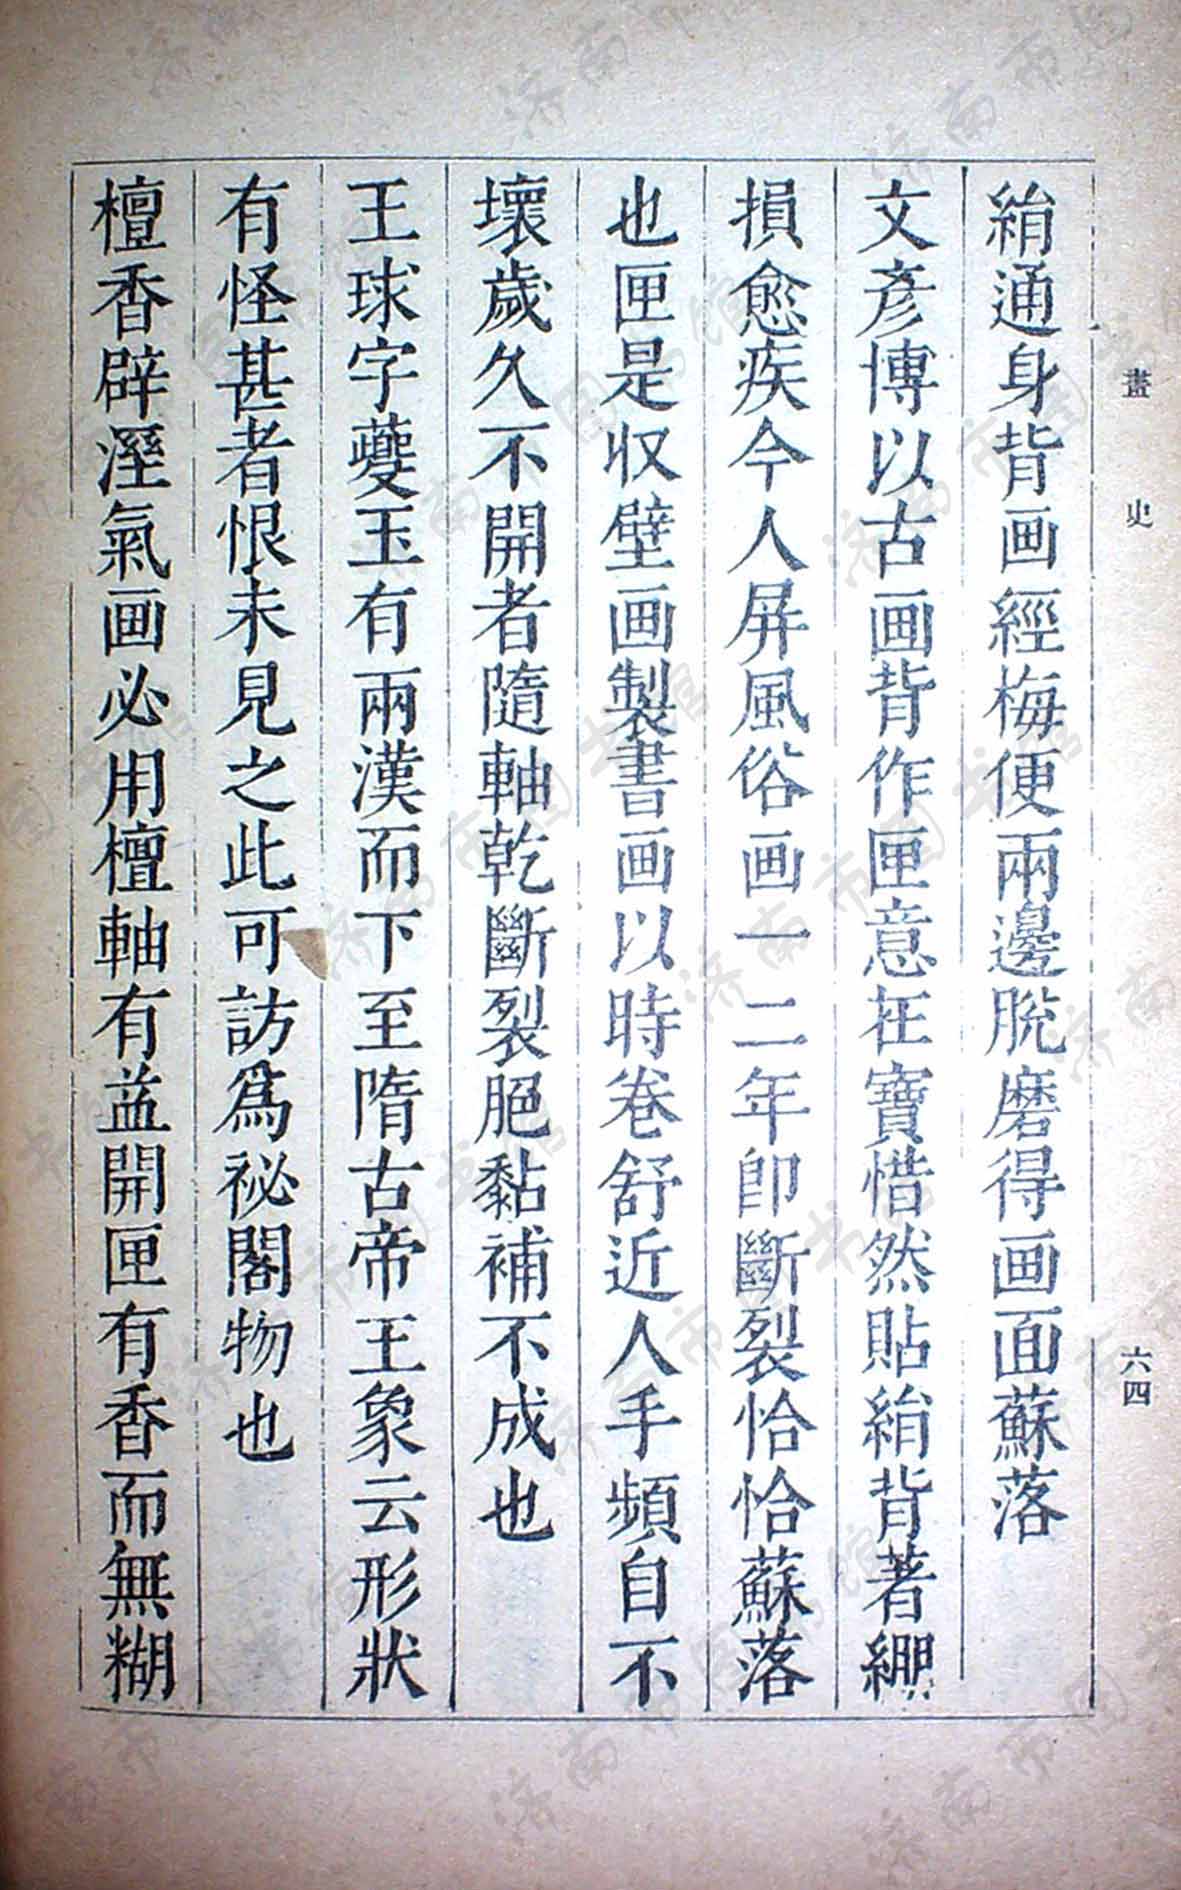 畫史
六四
絹通身背画經梅便兩邊脫磨得画面蘇落
文彥博以古画背作匣意在寶惜然貼絹背著繃
損愈疾今人屏風俗画一二年卽斷裂恰恰蘇落
也匣是収壁画製書画以時卷舒近人手頻自不
壞歲久不開者隨軸乾斷裂脆黏補不成也
王球字夔玉有兩漢而下至隋古帝王象云形狀
有怪甚者恨未見之此可訪爲祕閣物也
檀香辟溼氣画必用檀軸有益開匣有香而無糊